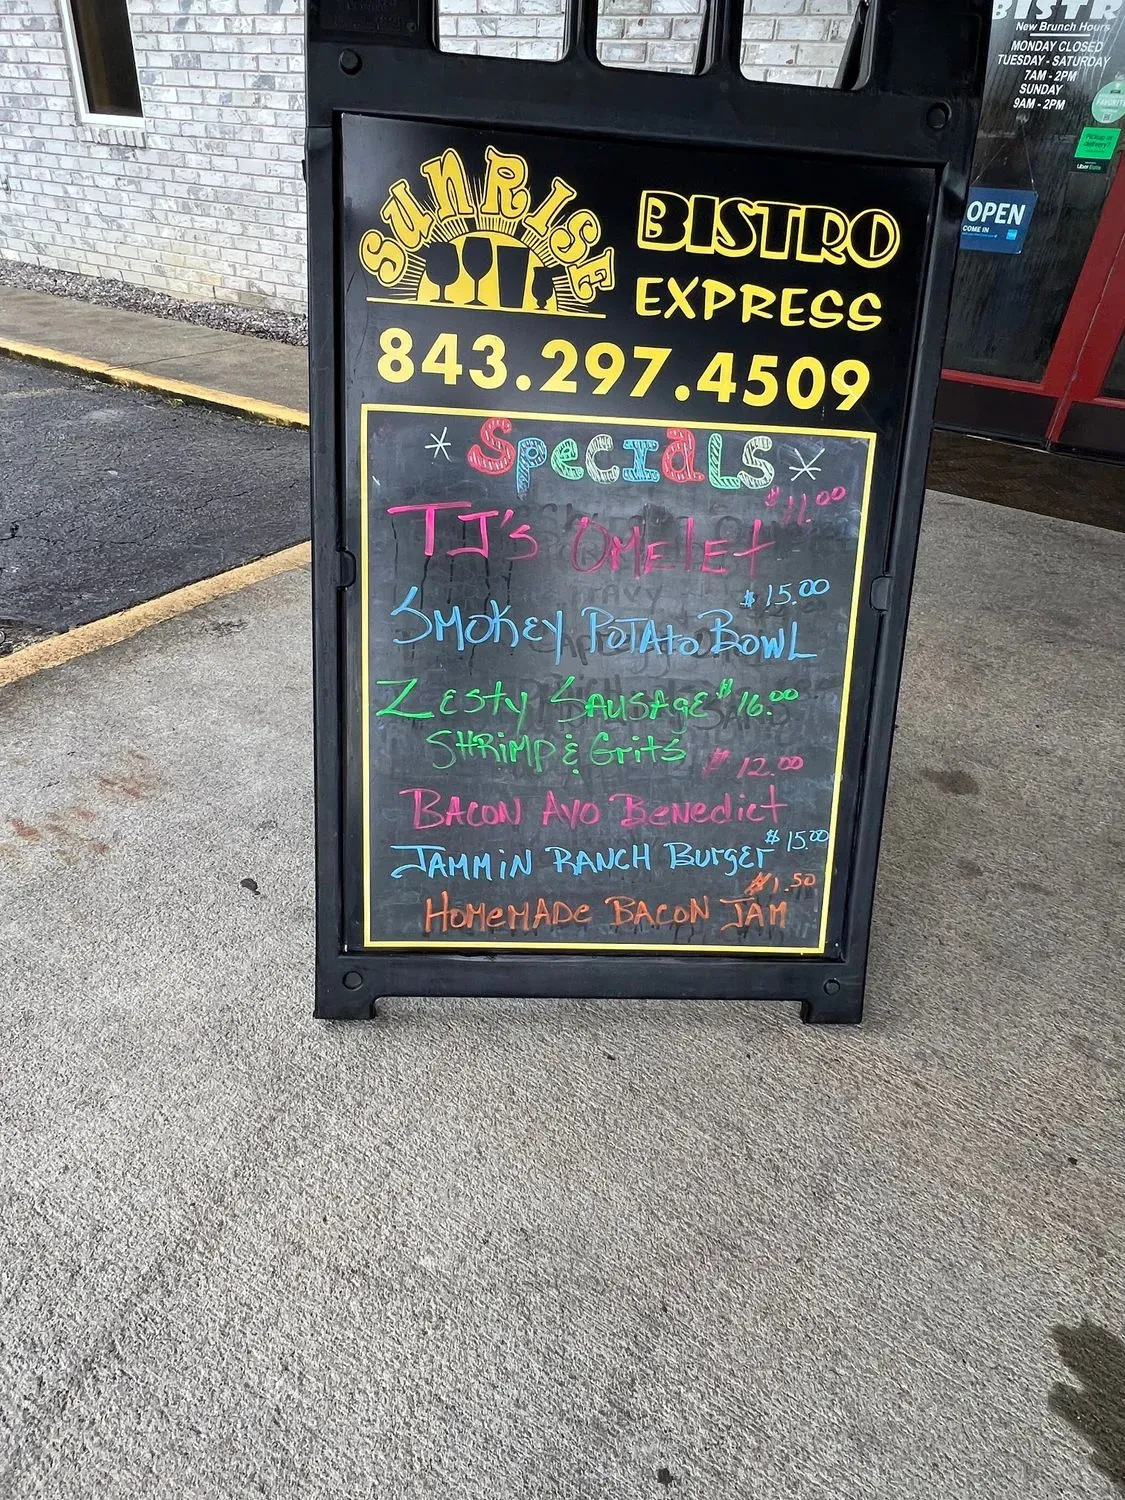 BISTR
New Brunch Hours
MONDAY CLOSED
TUESDAY - SATURDAY
7AM - 2PM
SUNDAY
9AM - 2PM
FAVORITE
Pickup or
delivery?
Uber Eats
OPEN
COME IN
SUNRISE
BISTRO
EXPRESS
843.297.4509
* SPECIALS *
$11.00
TJ's OMELET
$15.00
SMOKEY POTATO BOWL
ZESTY SAUSAGE $16.00
SHRIMP & Grits
$12.00
BACON AVO BENEDICT
JAMMIN RANCH BURGER $15.00
$1.50
HOMEMADE BACON JAM